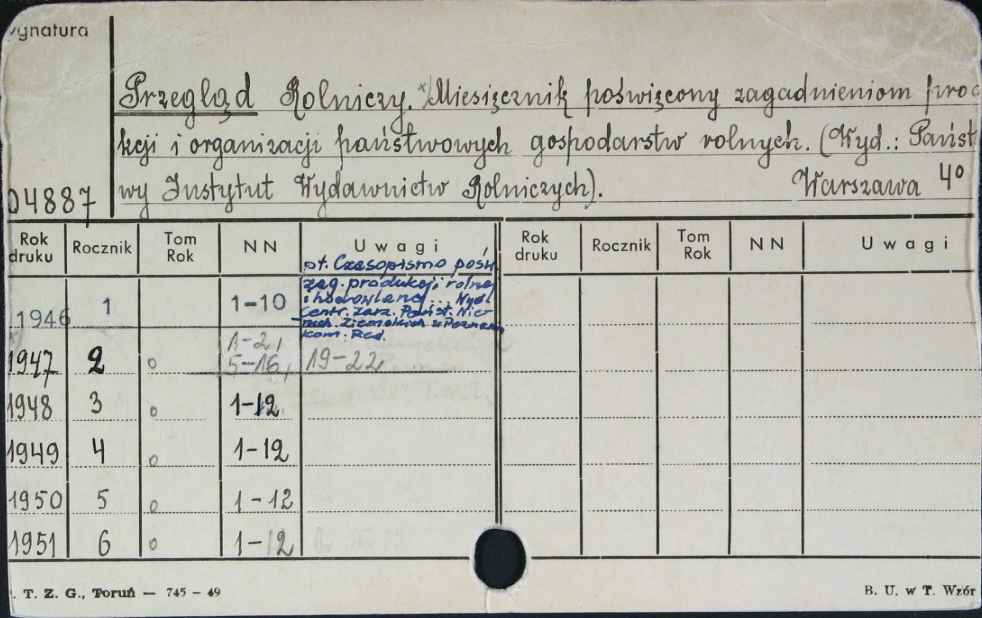 ygnatura
Przegląd Rolniczy. x) Miesięcznik poświęcony zagadnieniom proc
kcji i organizacji państwowych gospodarstw rolnych. (Wyd.: Państ
04887 wy Instytut Wydawnictw Rolniczych). Warszawa 4°
Rok druku Rocznik Tom Rok NN Uwagi Rok druku Rocznik Tom Rok NN Uwagi
pt. Czasopismo pośw.
zag. produkcji rolnej
i hodowlanej... Wyd.
Centr. Zarz. Państ. Nie-
ruch. Ziemskich w Poznan
Kom. Red.
1946 1 1-10
1947 2 o 1-2, 5-16, 19-22
1948 3 o 1-12
1949 4 o 1-12
1950 5 o 1-12
1951 6 o 1-12
. T. Z. G., Toruń — 745 - 49 B. U. w T. Wzór